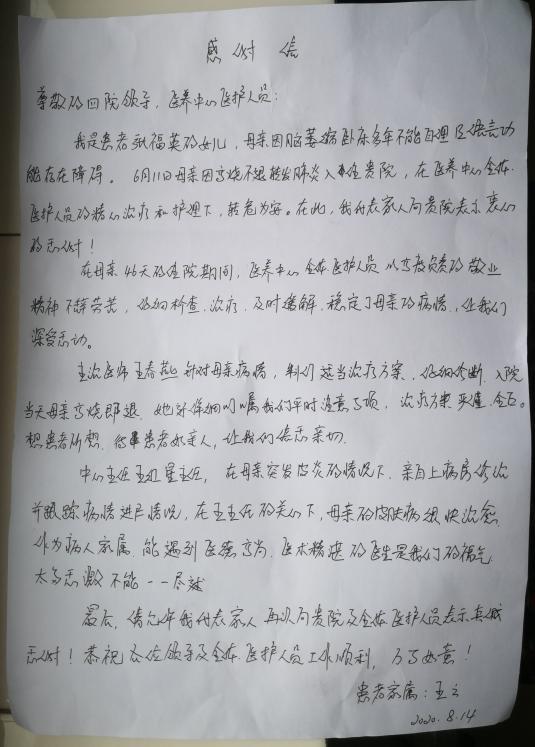 感谢信
尊敬的四院领导，医养中心医护人员：
我是患者张福英的女儿，母亲因脑萎缩卧床多年不能自理且语言功
能存在障碍。6月11日母亲因高烧不退转发肺炎入住贵院，在医养中心全体
医护人员的精心治疗和护理下，转危为安。在此，我代表家人向贵院表示衷心
的感谢！
在母亲46天的住院期间，医养中心全体医护人员以高度负责的敬业
精神不辞劳苦，仔细检查、治疗、及时缓解、稳定了母亲的病情，让我们
深受感动。
主治医师王春燕针对母亲病情，制定适当治疗方案、仔细诊断，入院
当天母亲高烧即退，她还详细叮嘱我们平时注意事项，治疗方案严谨、全面。
想患者所想，待患者如亲人，让我们倍感亲切。
中心主任王红星主任，在母亲突发皮炎的情况下，亲自上病房诊治
并跟踪病情进展情况，在王主任的关心下，母亲的皮肤病很快治愈。
作为病人家属，能遇到医德高尚、医术精湛的医生是我们的福气
太多感激不能一一尽述
最后，请允许我代表家人再次向贵院及全体医护人员表示真诚
感谢！恭祝各位领导及全体医护人员工作顺利，万事如意！
患者家属：王立
2020.8.14